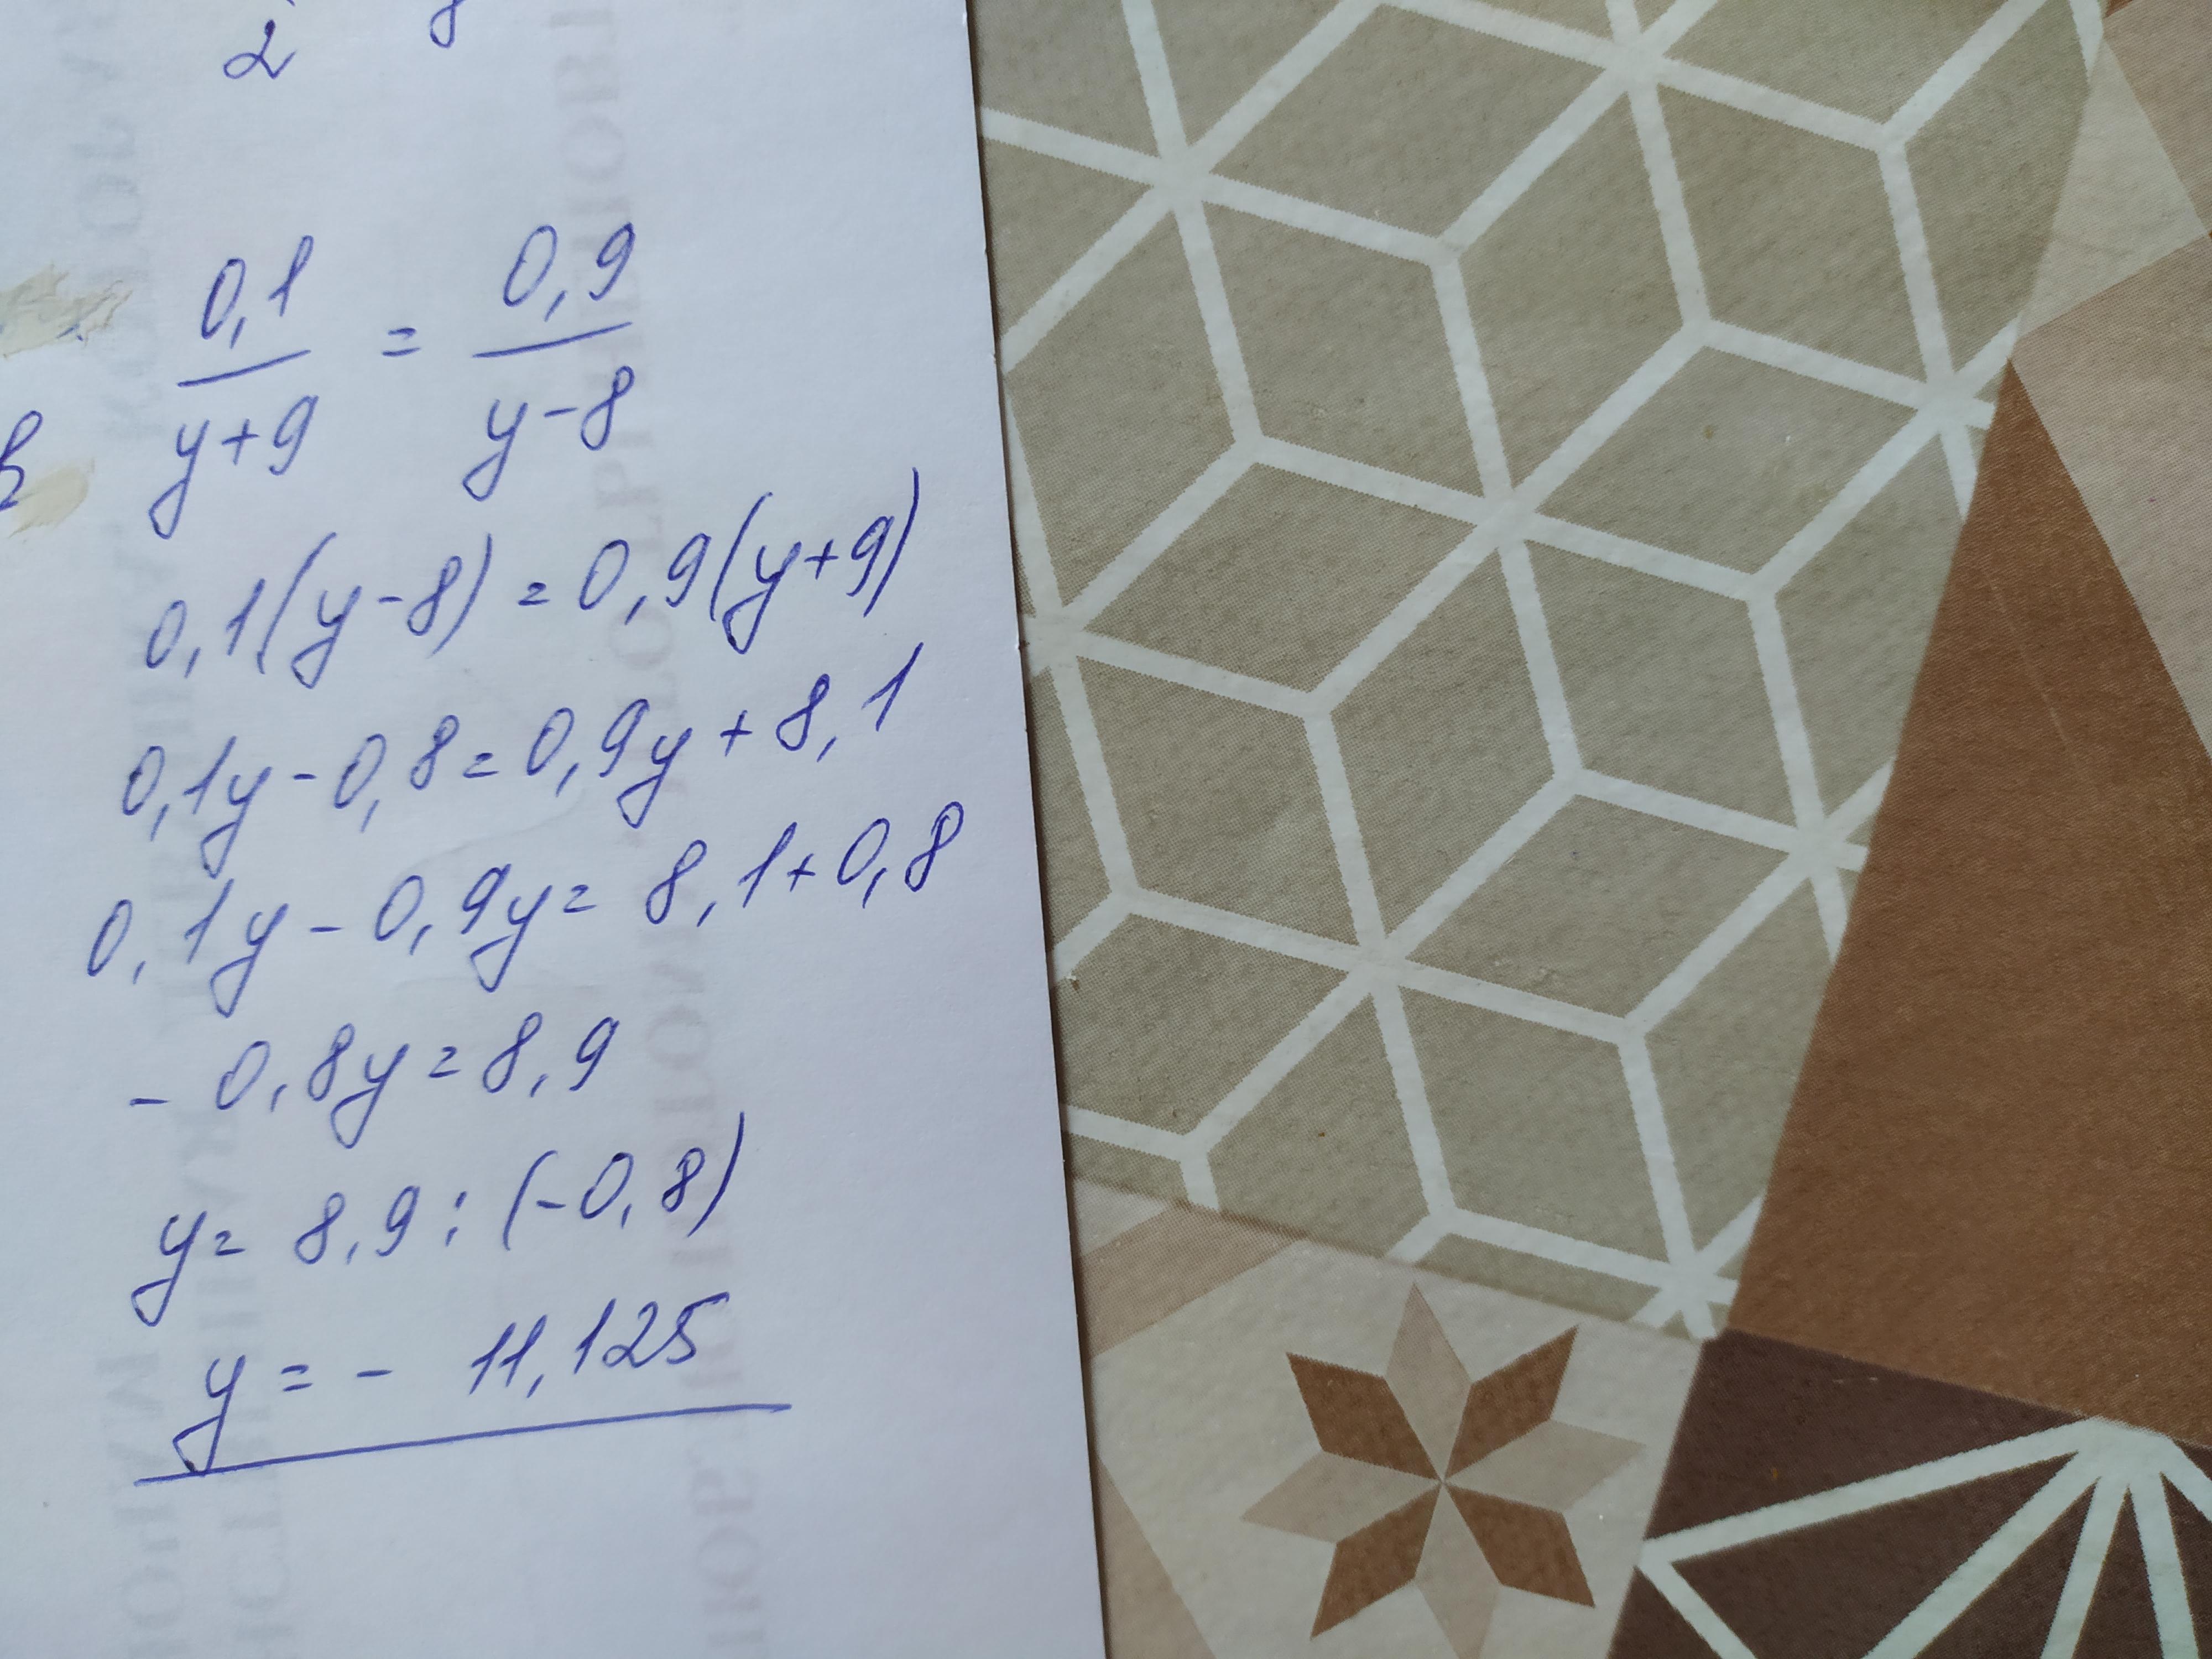 2
0,1 / y+9 = 0,9 / y-8
0,1(y-8)=0,9(y+9)
0,1y-0,8=0,9y+8,1
0,1y-0,9y=8,1+0,8
-0,8y=8,9
y=8,9:(-0,8)
y=-11,125